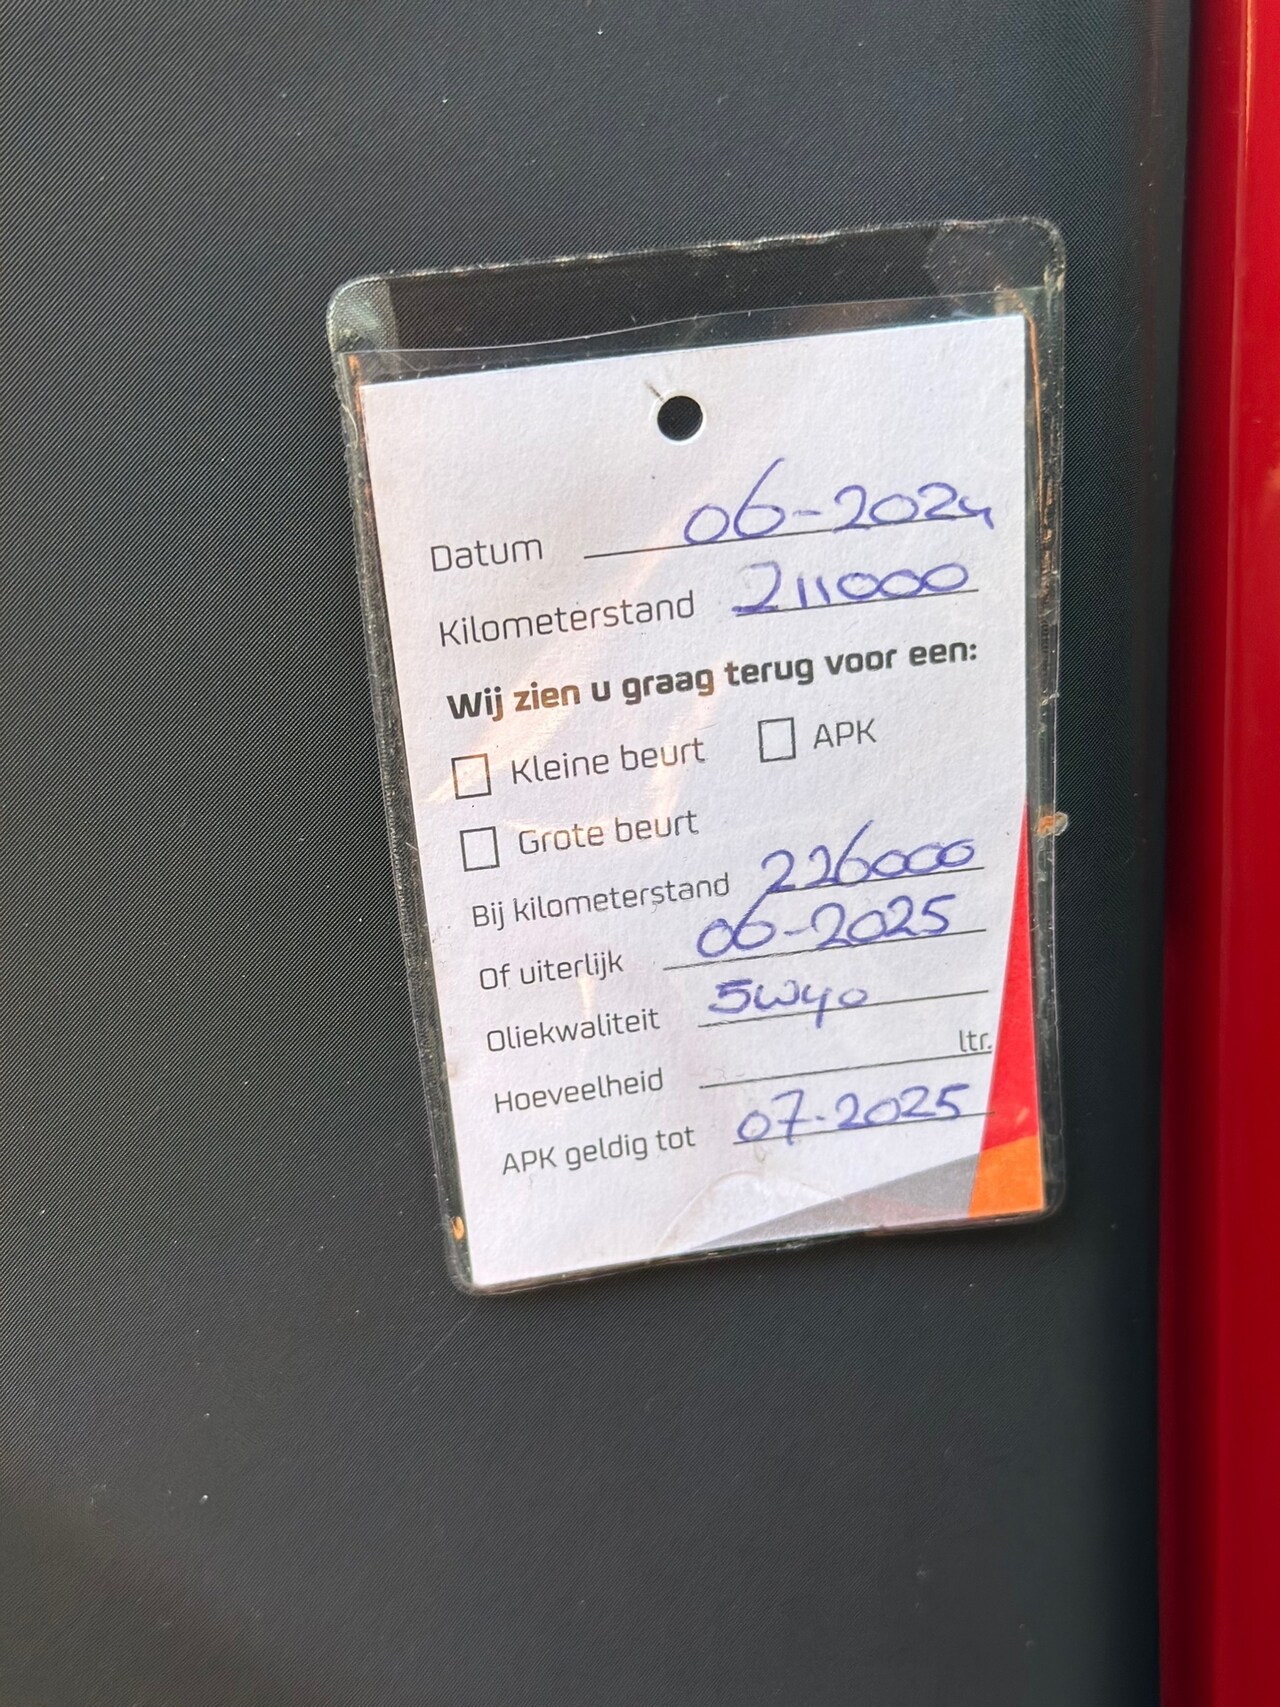 Datum 06-2024
Kilometerstand 211000
Wij zien u graag terug voor een:
Kleine beurt APK
Grote beurt
Bij kilometerstand 226000
Of uiterlijk 06-2025
Oliekwaliteit 5W40
Hoeveelheid ltr.
APK geldig tot 07-2025